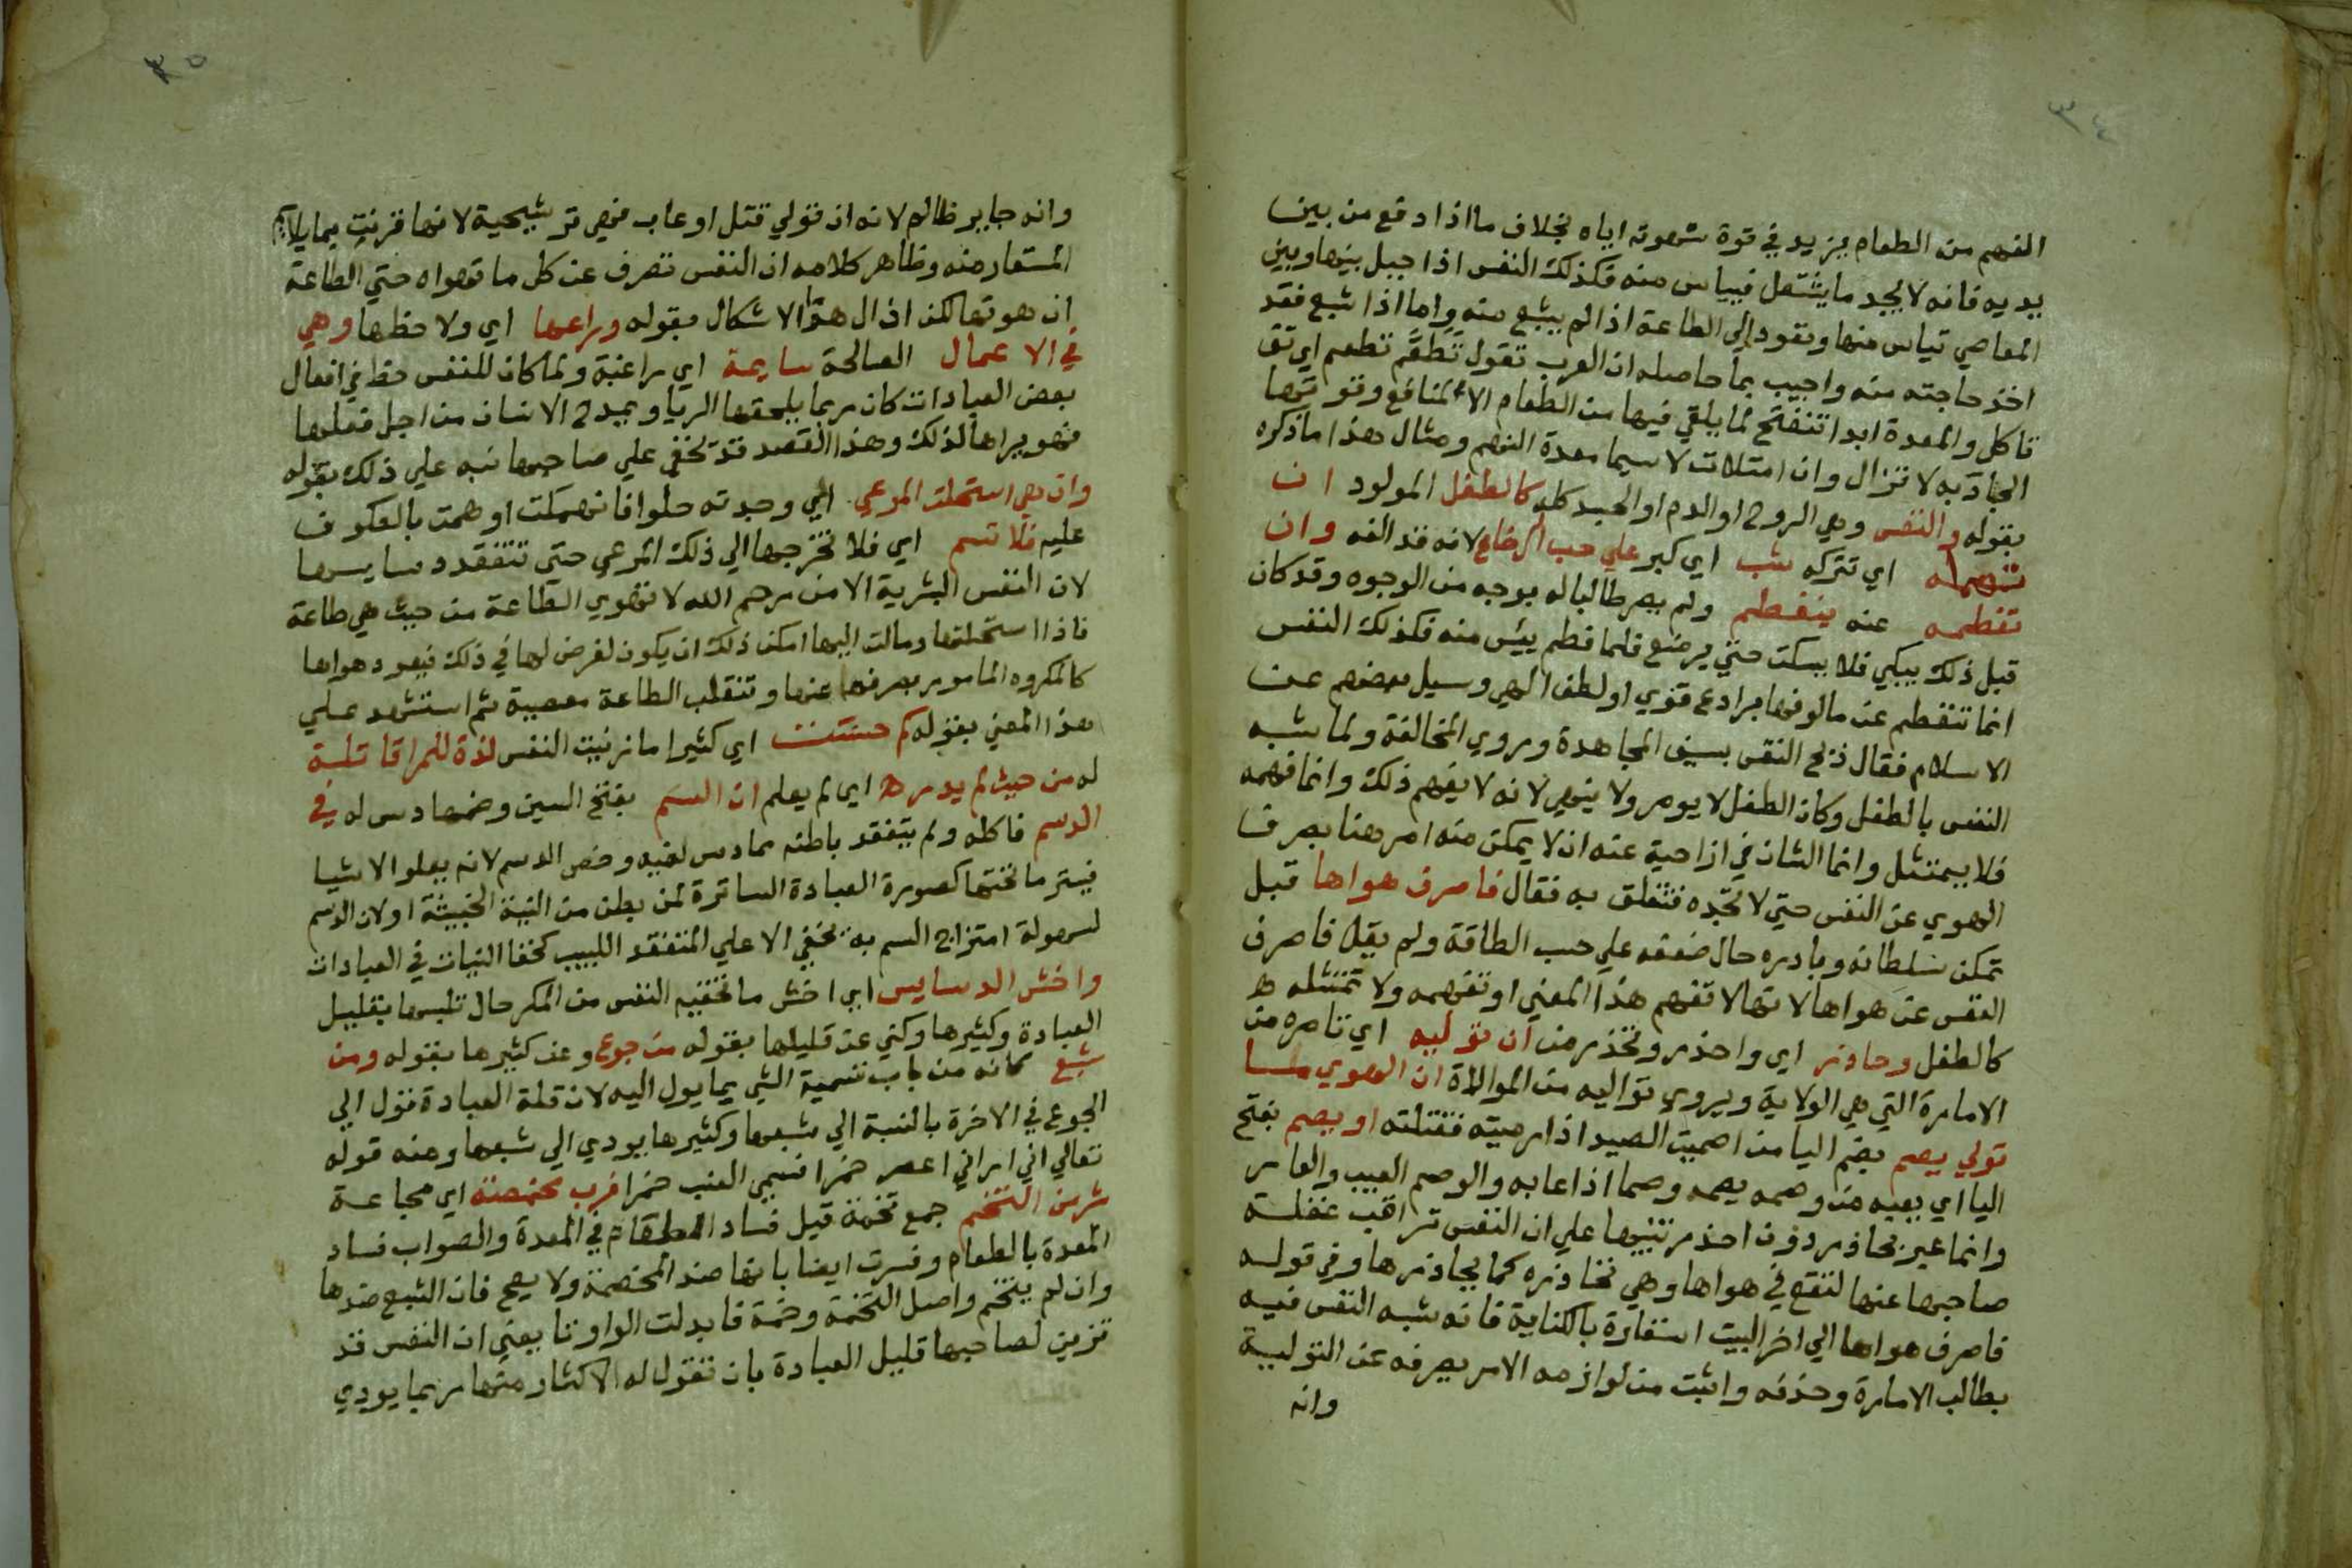 ٣٤
النهم من الطعام يزيد في قوة شهوته اياه بخلاف ما اذا دفع من بين
يديه فانه لا يجد ما يشتغل فيياس منه فكذلك النفس اذا حيل بينها وبين
المعاصي تياس منها وتقود الي الطاعة اذا لم يشبع منه واما اذا شبع فقد
اخذ حاجته منه واجيب بما حاصله ان العرب تقول تَطعَّم تطعم اي ذق
تاكل والمعدة ابدا تنفتح لما يلقي فيها من الطعام الا لمنافع وقوتها
الجاذبه لا تزال وان امتلات لا سيما معدة النهم ومثال هذا ما ذكره
بقوله والنفس وهي الروح او الدم او الجسد كله كالطفل المولود ان
تهمله اي تتركه شب اي كبر علي حب الرضاع لانه قد الفه وان
تفطمه عنه ينفطم ولم يصر طالبا له بوجه من الوجوه وقد كان
قبل ذلك يبكي فلا يسكت حتي يرضع فلما فطم ييس منه فكذلك النفس
انما تنفطم عن مالوفها برادع قوي او لطف الهي وسيل بعضهم عن
الاسلام فقال ذبح النفس بسيف المجاهدة ويروي المخالفة ولما شبه
النفس بالطفل وكان الطفل لا يومر ولا ينهي لانه لا يفهم ذلك وانما فهمه
فلا يمتثل وانما الشان في ازاحية عنه ان لا يمكن منه امر هنا بصرف
الهوي عن النفس حتي لا تجده فتتعلق به فقال فاصرف هواها قبل
تمكن سلطانه وبادره حال ضعفه علي حسب الطاقة ولم يقل فاصرف
النفس عن هواها لانها لا تفهم هذا المعني او تفهمه ولا تمتثله
كالطفل وحاذر اي واحذر وتحذر من ان توليه اي تامره من
الامارة التي هي الولاية ويروي تواليه من الموالاة ان الهوي ما
تولي يصم بضم اليا من اصميت الصيد اذا رميته فقتلته او يصم بفتح
اليا اي يعيبه من وصمه يصمه وصما اذا عابه والوصم العيب والعار
وانما عبر بحاذر دون احذر تنبيها علي ان النفس تراقب غفلة
صاحبها عنها لتقع في هواها وهي تحاذره كما يحاذرها وفي قوله
فاصرف هواها الي اخر البيت استعارة بالكناية فانه شبه النفس فيه
بطالب الامارة وحذفه واثبت من لوازمه الامر بصرفه عن التولية
وانه
٣٥
وانه جاير ظالم لانه ان تولي قتل او عاب فهي ترشيحية لانها قرنت بما يلايم
المستعار منه وظاهر كلامه ان النفس تصرف عن كل ما تهواه حتي الطاعة
ان هوتها لكن ازال هذا الاشكال بقوله وراعها اي ولاحظها وهي
في الاعمال الصالحة سايمة اي راغبة ولما كان للنفس حظ في افعال
بعض العبادات كان ربما يلحقها الريا ويمدح الانسان من اجل فعلها
فهو يراها لذلك وهذا القصد قد تخفي علي صاحبها نبه علي ذلك بقوله
وان هي استحلت المرعي اي وجدته حلوا فانهمكت او همت بالعكوف
عليه فلا تسم اي فلا تخرجها الي ذلك المرعي حتي تتفقد دسايسها
لان النفس البشرية الا من رحم الله لا تهوي الطاعة من حيث هي طاعة
فاذا استحلتها ومالت اليها امكن ذلك ان يكون لغرض لها في ذلك فيعود هواها
كالمكروه المامور بصرفها عنها وتنقلب الطاعة معصية ثم استشهد علي
هذا المعني بقوله كم حسنت اي كثيرا ما زينت النفس لذة للمرا قاتلة
له من حيث لم يدر اي لم يعلم ان السم بفتح السين وضمها دس له في
الدسم فاكله ولم يتفقد باطنه مما دس لغيبه وخص الدسم لانه يعلو الاشيا
فيستر ما تحتها كصورة العبادة الساترة لمن يطن من النية الخبيثة او لان الدسم
لسهولة امتزاج السم به يخفي الا علي المتفقد اللبيب كخفا النيات في العبادات
واخش الدسايس اي اخش ما تخفيه النفس من المكر حال تلبسها بقليل
العبادة وكثيرها وكني عن قليلها بقوله من جوع وعن كثيرها بقوله ومن
شبع كانه من باب تسمية الشي بما يول اليه لان قلة العبادة تول الي
الجوع في الاخرة بالنسبة الي شبعها وكثيرها يودي الي شبعها ومنه قوله
تعالي اني اراني اعصر خمرا فسمي العنب خمرا فرب مخمصة اي مجاعة
شر من التخم جمع تخمة قيل فساد الطعام في المعدة والصواب فساد
المعدة بالطعام وفسرت ايضا بانها ضد المخمصة ولا يصح فان الشبع ضدها
وان لم يتخم واصل التخمة وخمة فابدلت الواو تا يعني ان النفس قد
تزين لصاحبها قليل العبادة بان تقول له الاكثار منها ربما يودي